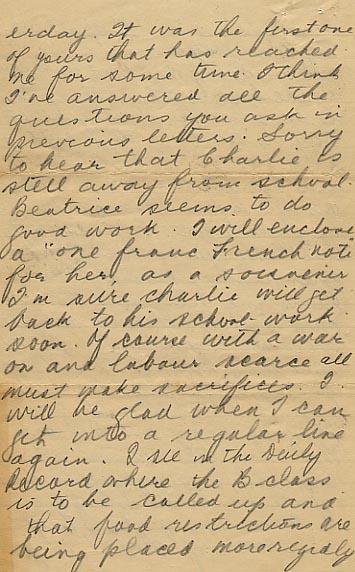 erday. It was the first one
of yours that has reached
me for some time. I think
I've answered all the
questions you ask in
previous letters. Sorry
to hear that Charlie is
still away from school.
Beatrice seems to do
good work. I will enclose
a "one franc French note
for her, as a souvenir
I'm sure Charlie will get
back to his school work
soon. Of course with a war
on and labour scarce all
must make sacrifices. I
will be glad when I can
get into a regular line
again. I see in the Daily
Record where the B class
is to be called up and
that food restrictions are
being placed more rigidly